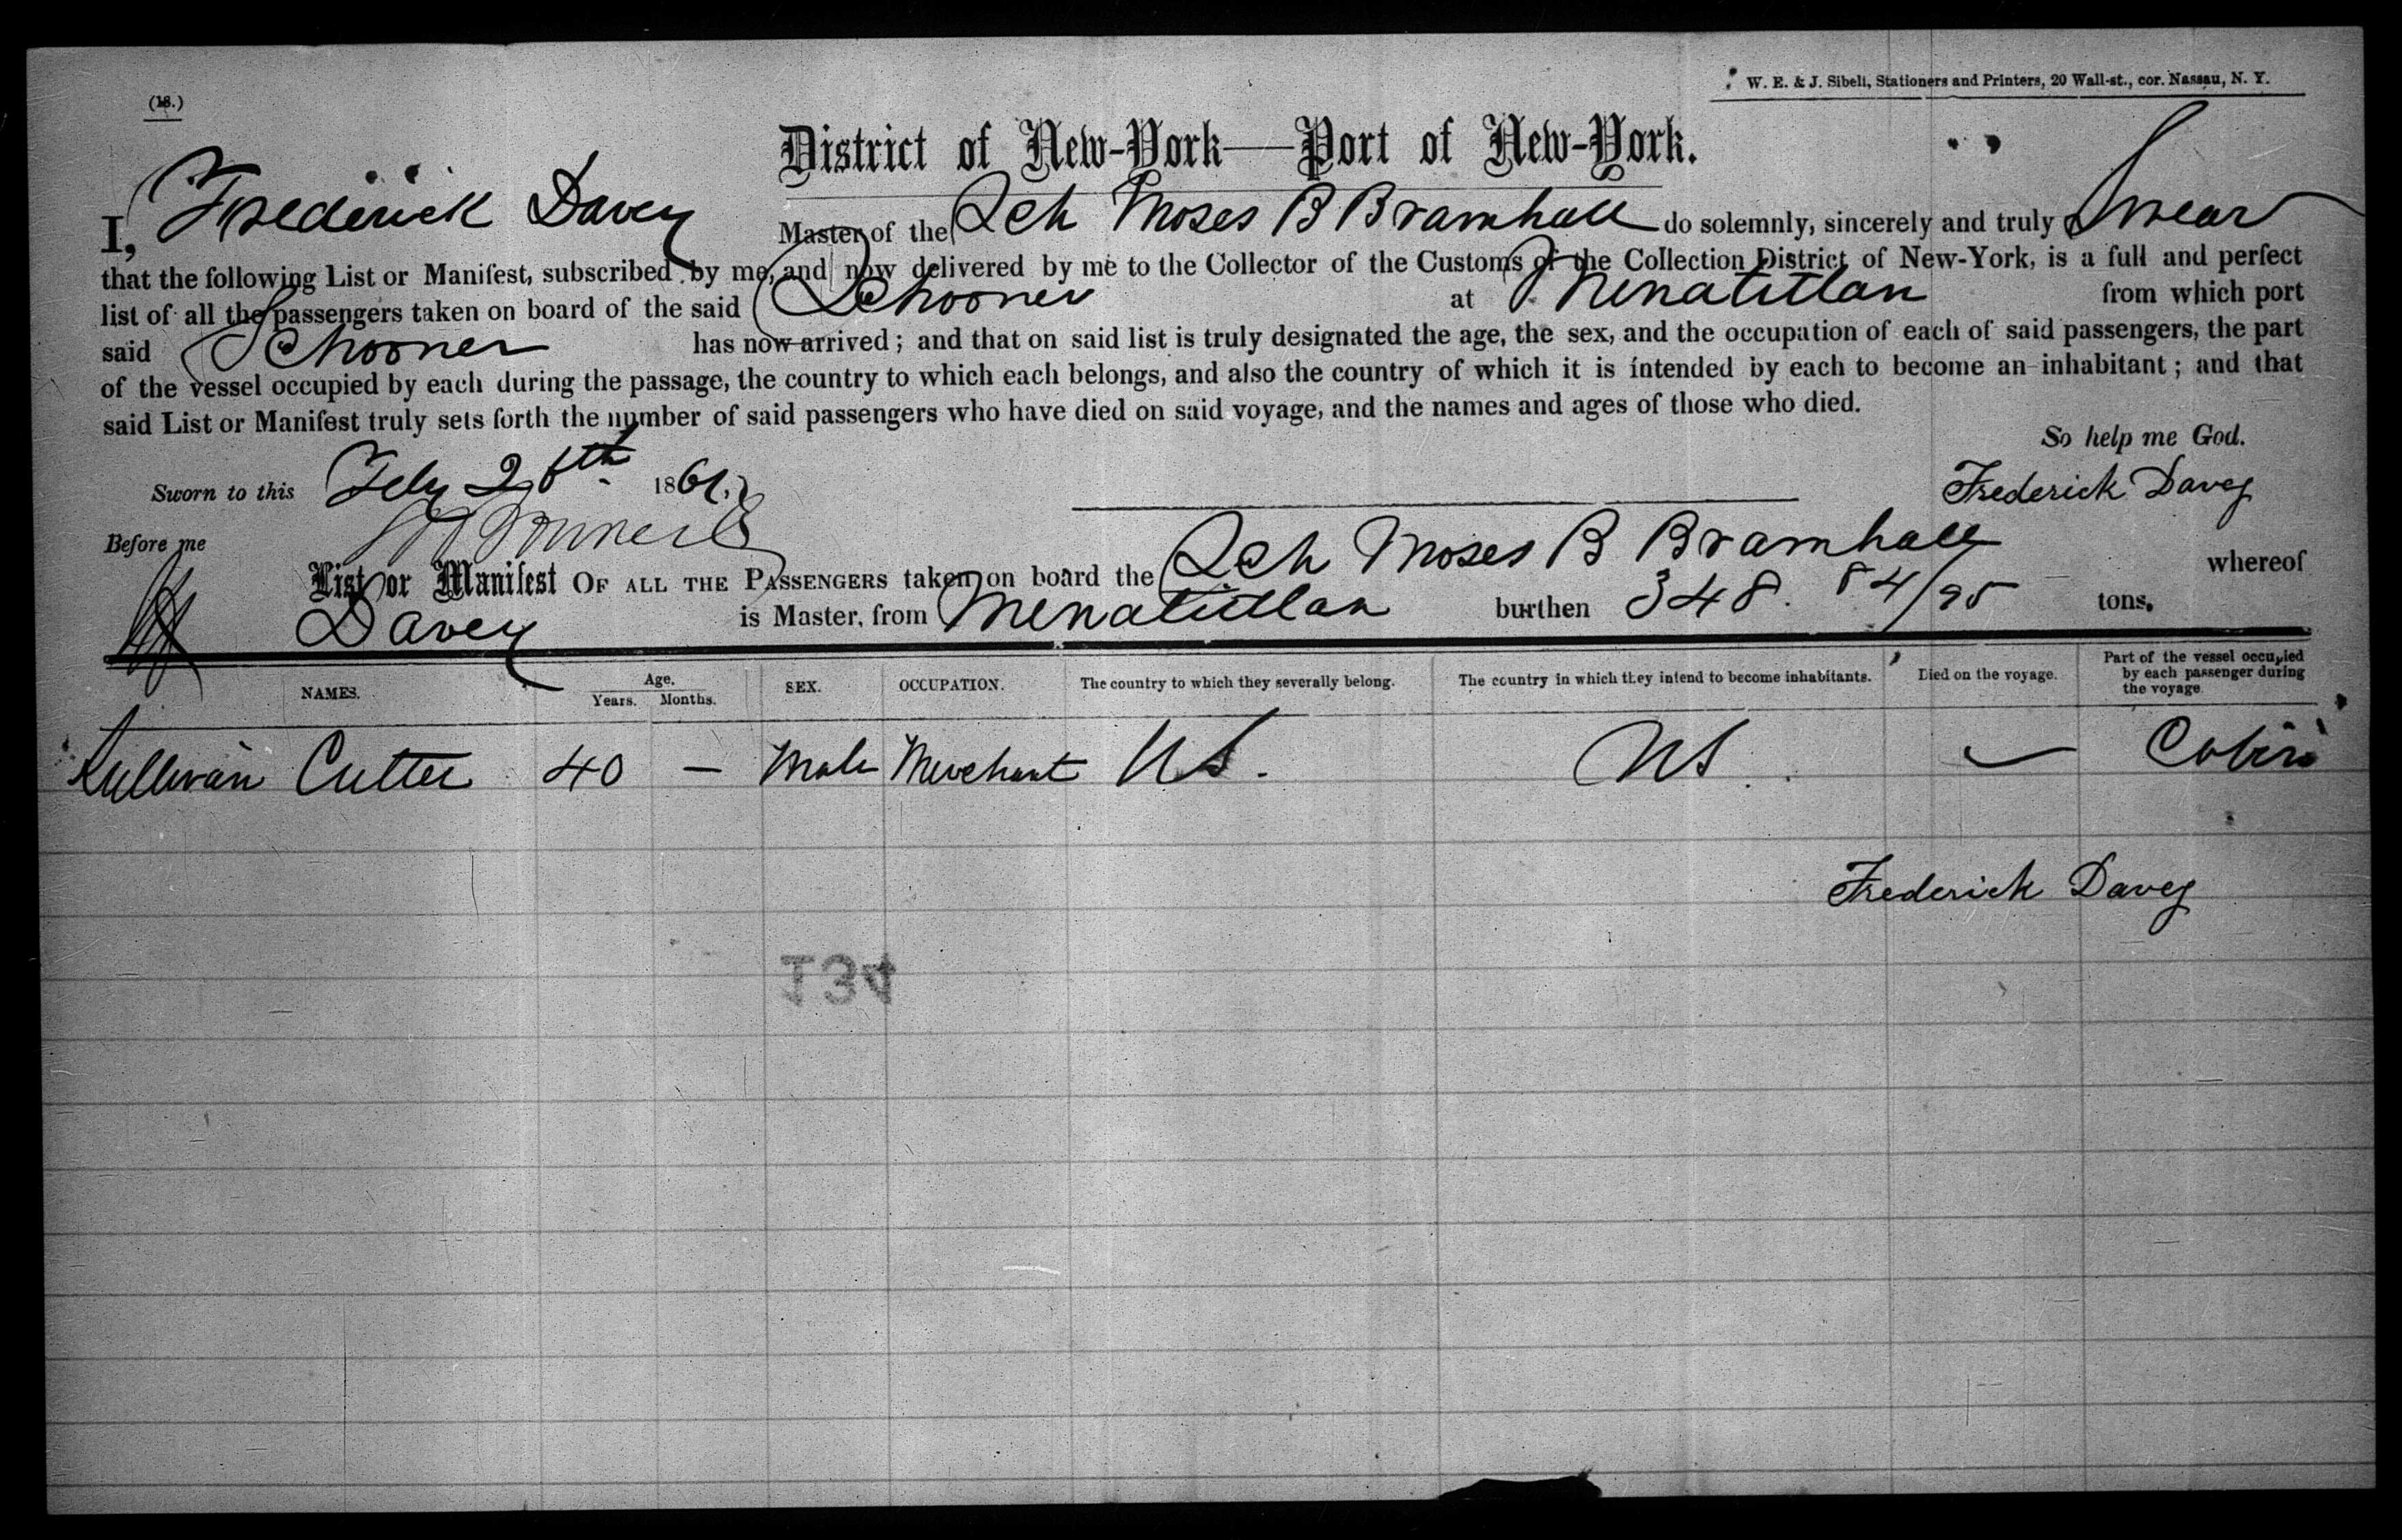 (18.)
W. E. & J. Sibell, Stationers and Printers, 20 Wall-st., cor. Nassau, N. Y.
District of New-York—Port of New-York.
I, Frederick Davey Master of the Sch Moses B Bramhall do solemnly, sincerely and truly Swear
that the following List or Manifest, subscribed by me, and now delivered by me to the Collector of the Customs of the Collection District of New-York, is a full and perfect
list of all the passengers taken on board of the said Schooner at Menatitlan from which port
said Schooner has now arrived; and that on said list is truly designated the age, the sex, and the occupation of each of said passengers, the part
of the vessel occupied by each during the passage, the country to which each belongs, and also the country of which it is intended by each to become an inhabitant; and that
said List or Manifest truly sets forth the number of said passengers who have died on said voyage, and the names and ages of those who died.
So help me God.
Sworn to this Feby 1861. Frederick Davey
Before me
List or Manifest OF ALL THE PASSENGERS taken on board the Sch Moses B Bramhall whereof
Davey is Master, from Menatitlan burthen 348. 84/95 tons.
NAMES. Age. Years. Months. SEX. OCCUPATION. The country to which they severally belong. The country in which they intend to become inhabitants. Died on the voyage. Part of the vessel occupied by each passenger during the voyage
Sullivan Cutter 40 — Male Merchant US. US. — Cabin
Frederick Davey
134